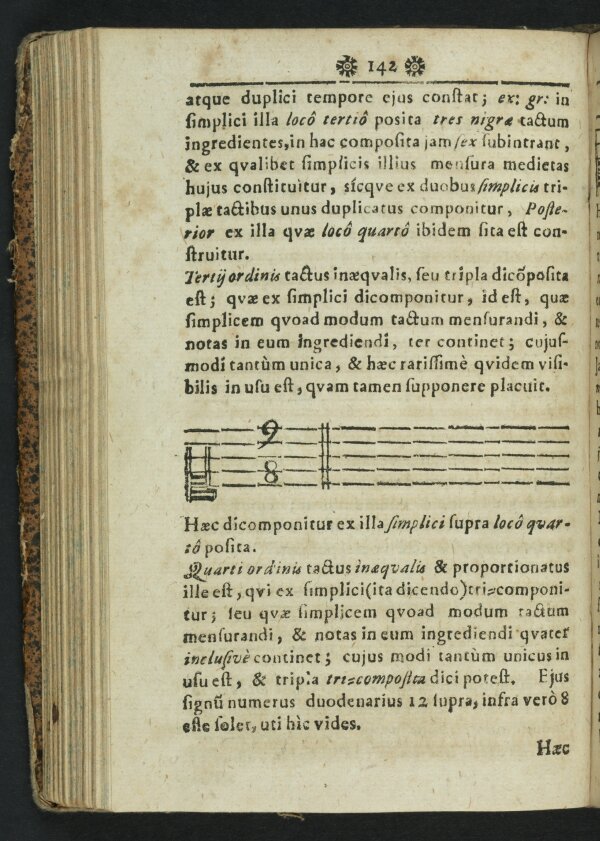 142
atque duplici tempore ejus constat; ex: gr: in
simplici illa locô tertiô posita tres nigræ tactum
ingredientes, in hac composita jam sex subintrant,
& ex qvalibet simplicis illius mensura medietas
hujus constituitur, sícqve ex duobus simplicis tri-
plæ tactibus unus duplicatus componitur, Poste-
rior ex illa qvæ locô quartô ibidem sita est con-
struitur.
Tertij ordinis tactus inæqvalis, seu tripla dicõposita
est; qvæ ex simplici dicomponitur, id est, quæ
simplicem qvoad modum tactum mensurandi, &
notas in eum ingrediendi, ter continet; cujus-
modi tantùm unica, & hæc rarissimè qvidem visi-
bilis in usu est, qvam tamen supponere placuit.
9
8
Hæc dicomponitur ex illa simplici supra locô qvar-
tô posita.
Quarti ordinis tactus inæqvalis & proportionatus
ille est, qvi ex simplici (ita dicendo) tri=componi-
tur; seu qvæ simplicem qvoad modum tactum
mensurandi, & notas in eum ingrediendi qvater
inclusivè continet; cujus modi tantùm unicus in
usu est, & tripla tri=composita dici potest. Ejus
signũ numerus duodenarius 12 supra, infra verò 8
esse solet, uti hìc vides.
Hæc